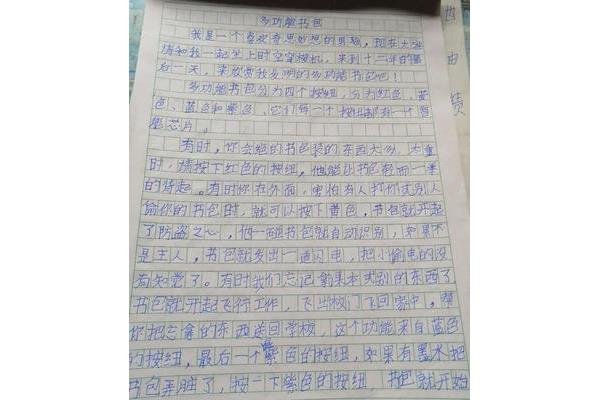 多功能书包
我是一个喜欢奇思妙想的男孩，现在大家
请和我一起坐上时空穿梭机，来到十二年的最
后一天，来欣赏我发明的多功能书包吧！
多功能书包分为四个按钮，分为红色、黄
色、蓝色和紫色，它们每一个按钮都有一个智
能芯片。
有时，你会觉的书包装的东西太多，太重
时，请按下红色的按钮，他能让书包轻而一举
的背起。有时你在外面，害怕有人打你或别人
偷你的书包时，就可以按下黄色，书包就开起
了防盗之心，他一碰书包就自动识别，如果不
是主人，书包就发出一道闪电，把小偷电的没
有知觉了。有时我们忘记拿课本或别的东西了
书包就开起飞行工作，飞出校门飞回家中，帮
你把忘拿的东西送回学校，这个功能来自蓝色
的按钮，最后一个紫色的按钮，如果有墨水把
书包弄脏了，按一下紫色的按钮，书包就开始
由
绩